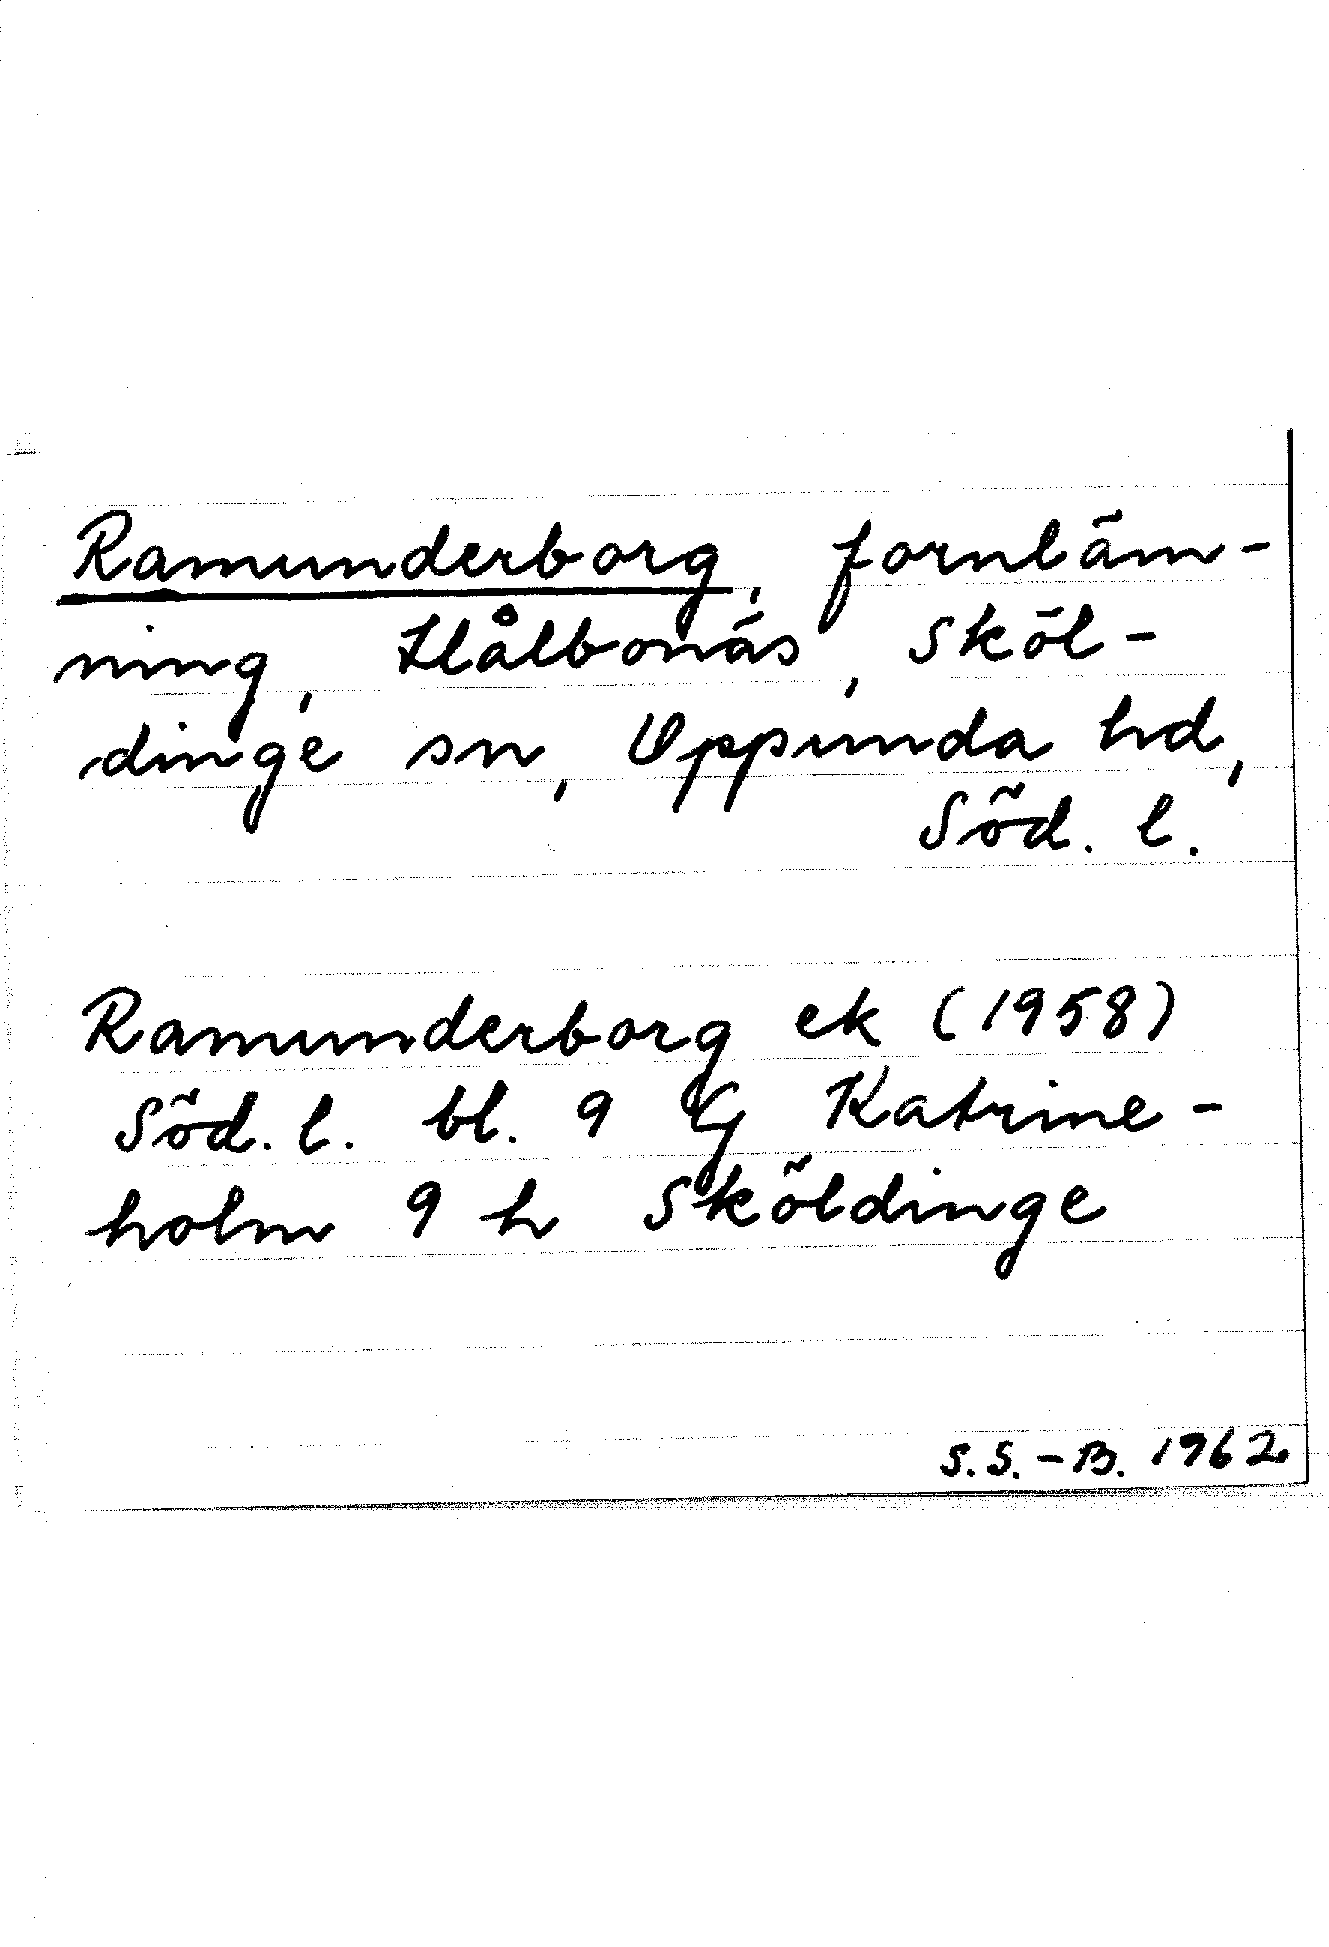 Ramunderborg, fornläm-
ning, Hålbonäs, Sköl-
dinge sn, Oppunda hd,
Söd. l.
Ramunderborg ek (1958)
Söd. l. bl. 9 G Katrine-
holm 9 h Sköldinge
S.S.-B. 1962